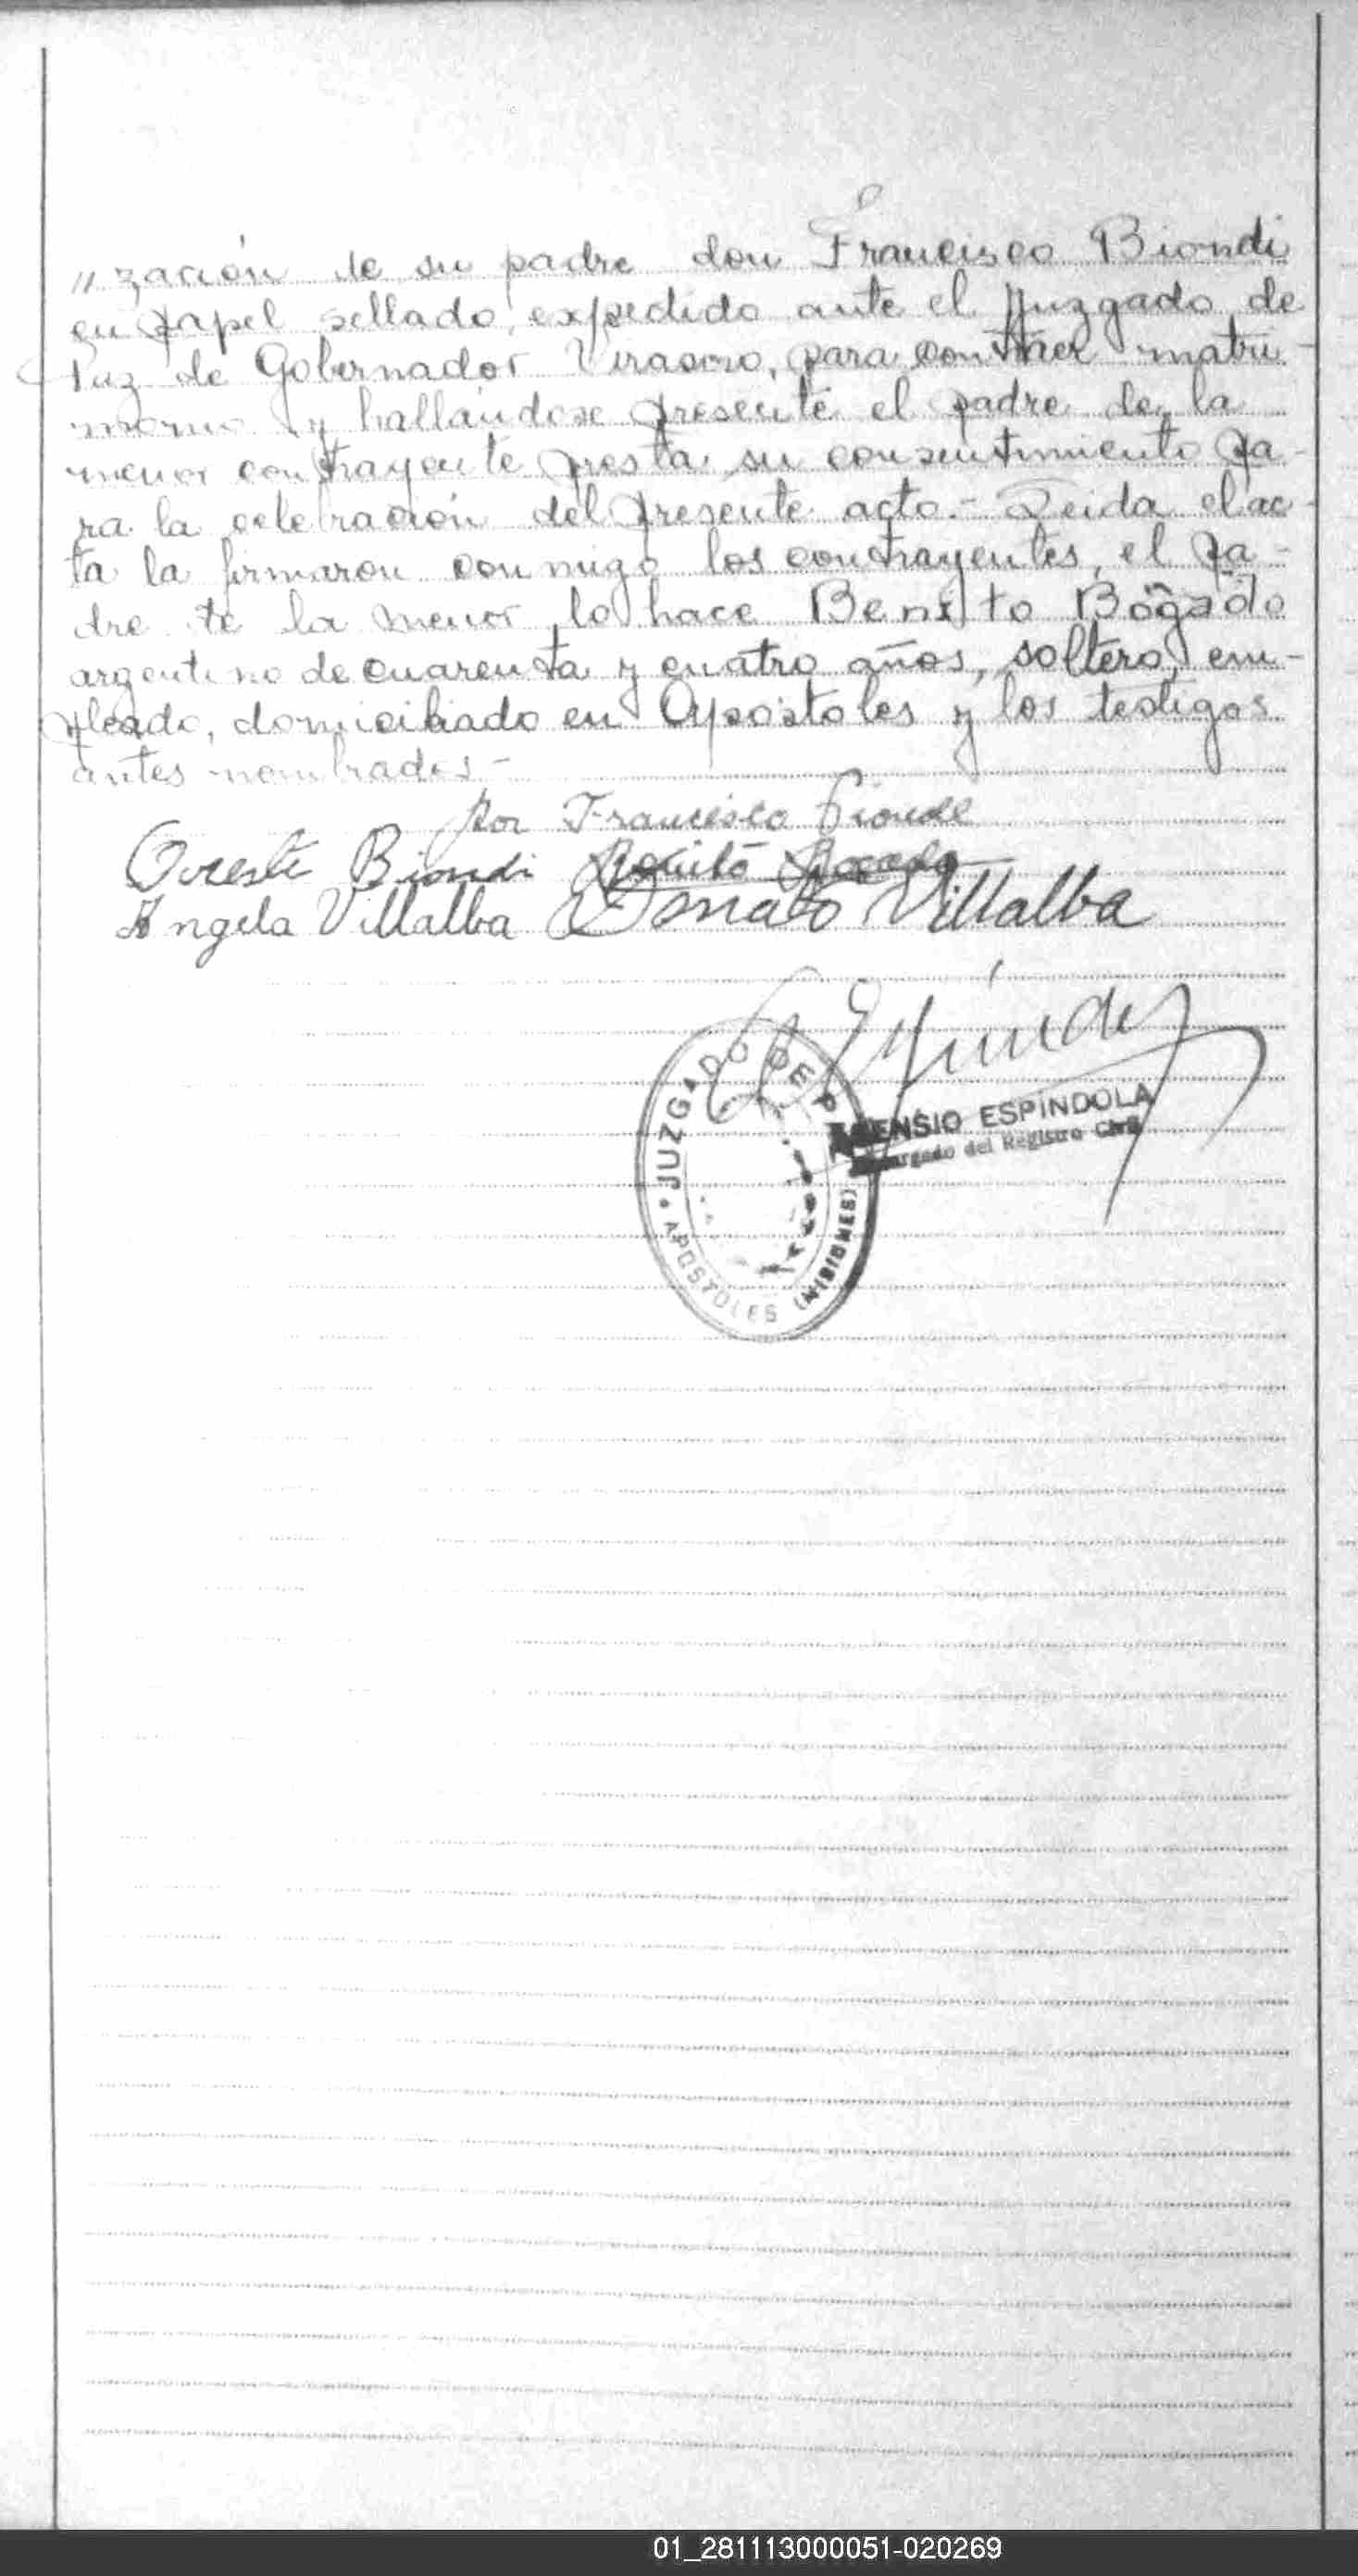 "zación de su padre don Francisco Biondi
en papel sellado, expedido ante el Juzgado de
Paz de Gobernador Virasoro, para contraer matri-
monio y hallándose presente el padre de la
menor contrayente presta su consentimiento pa-
ra la celebración del presente acto.- Leida el ac-
ta la firmaron conmigo los contrayentes, el pa-
dre de la menor, lo hace Benito Bogado
argentino de cuarenta y cuatro años, soltero, em-
pleado, domiciliado en Apóstoles y los testigos
antes nombrados-
por Francisco Bionde
Oreste Biondi Benito Bogado
Angela Villalba Donato Villalba
JUZGADO DE P
APOSTOLES (MISIONES)
ENSIO ESPINDOLA
argado del Registro Civil
01_281113000051-020269